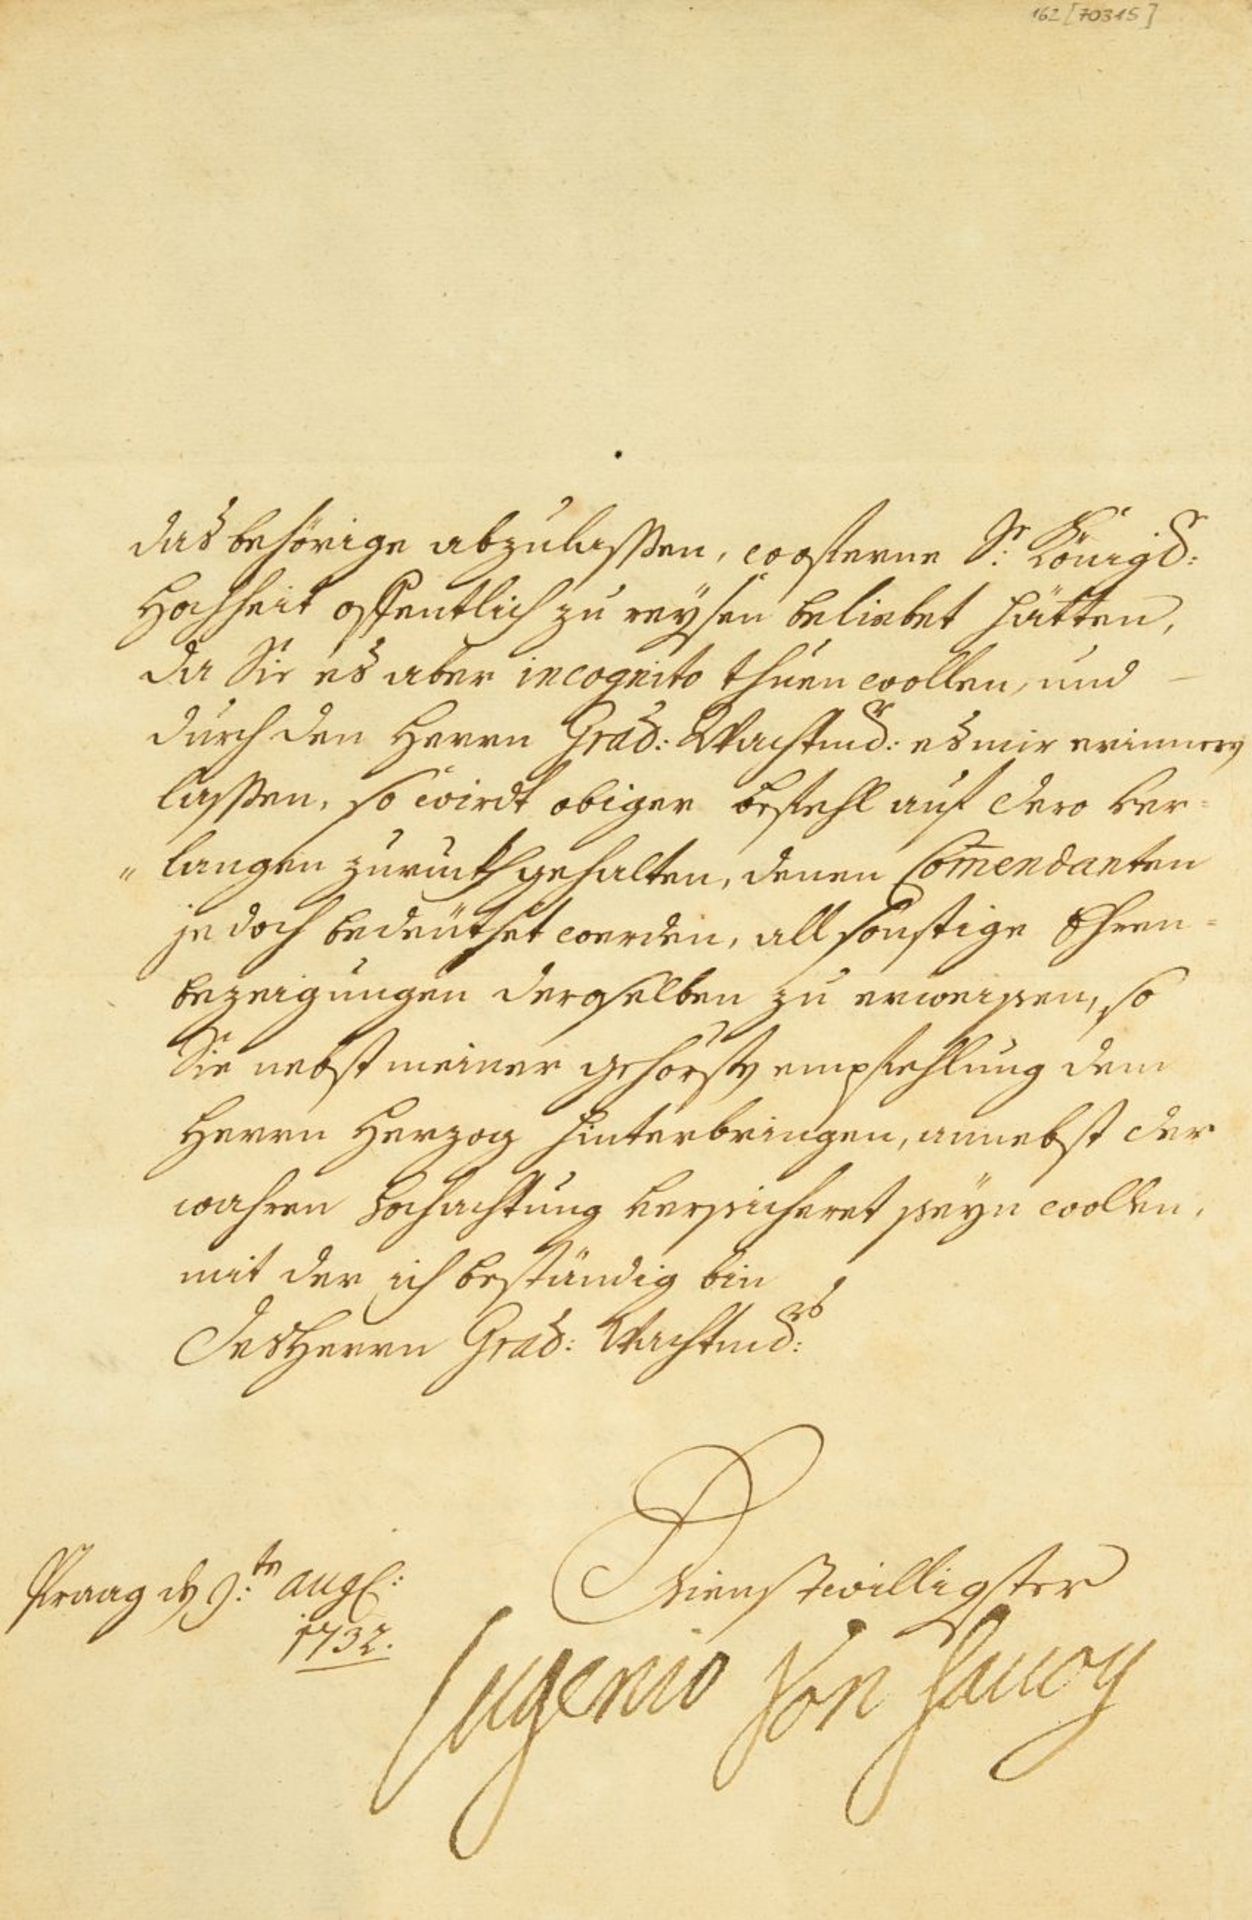 162 [70315]
das behörige abzulassen, wofferne Sr: Königl:
Hochheit offentlich zu reysen beliebet hätten,
da Sie es aber incognito thuen wollen, und
durch den Herrn Gral: Wachtmr: es mir erinnern
lassen, so wirdt obiger befehl auf dero Ver=
"langen zuruckh gehalten, denen Com̄endanten
jedoch bedeüthet werden, all sonstige Ehren=
bezeigungen deroselben zu erweisen, so
Sie nebst meiner gehorsten empfehlung dem
Herrn Herzog hinterbringen, annebst der
wahren Hochachtung versicheret seyn wollen,
mit der ich beständig bin
Des Herrn Gral: Wachtmrs:
Praag den 9:ten Aug:
1732.
Dienstwilligster
Eugenio Von Savoy